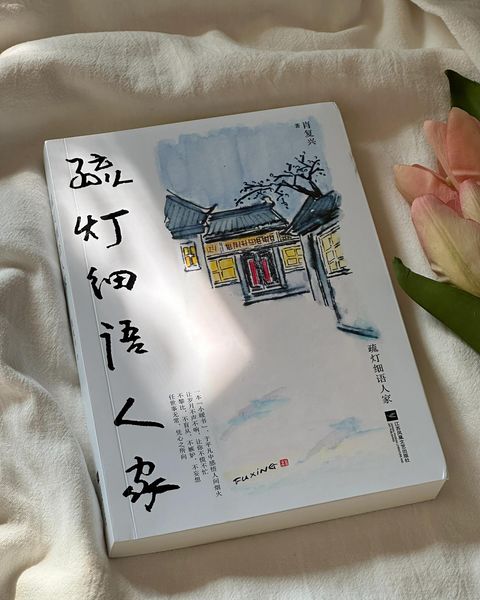 疏灯细语人家
肖复兴
著
疏灯细语人家
江苏凤凰文艺出版社
一本“小暖书”，于平凡中感悟人间烟火
让岁月不声不响，让你不慌不忙
不攀比，不盲从，不嫉妒，不妄想
任世事无常，凭心之所向
FUXING